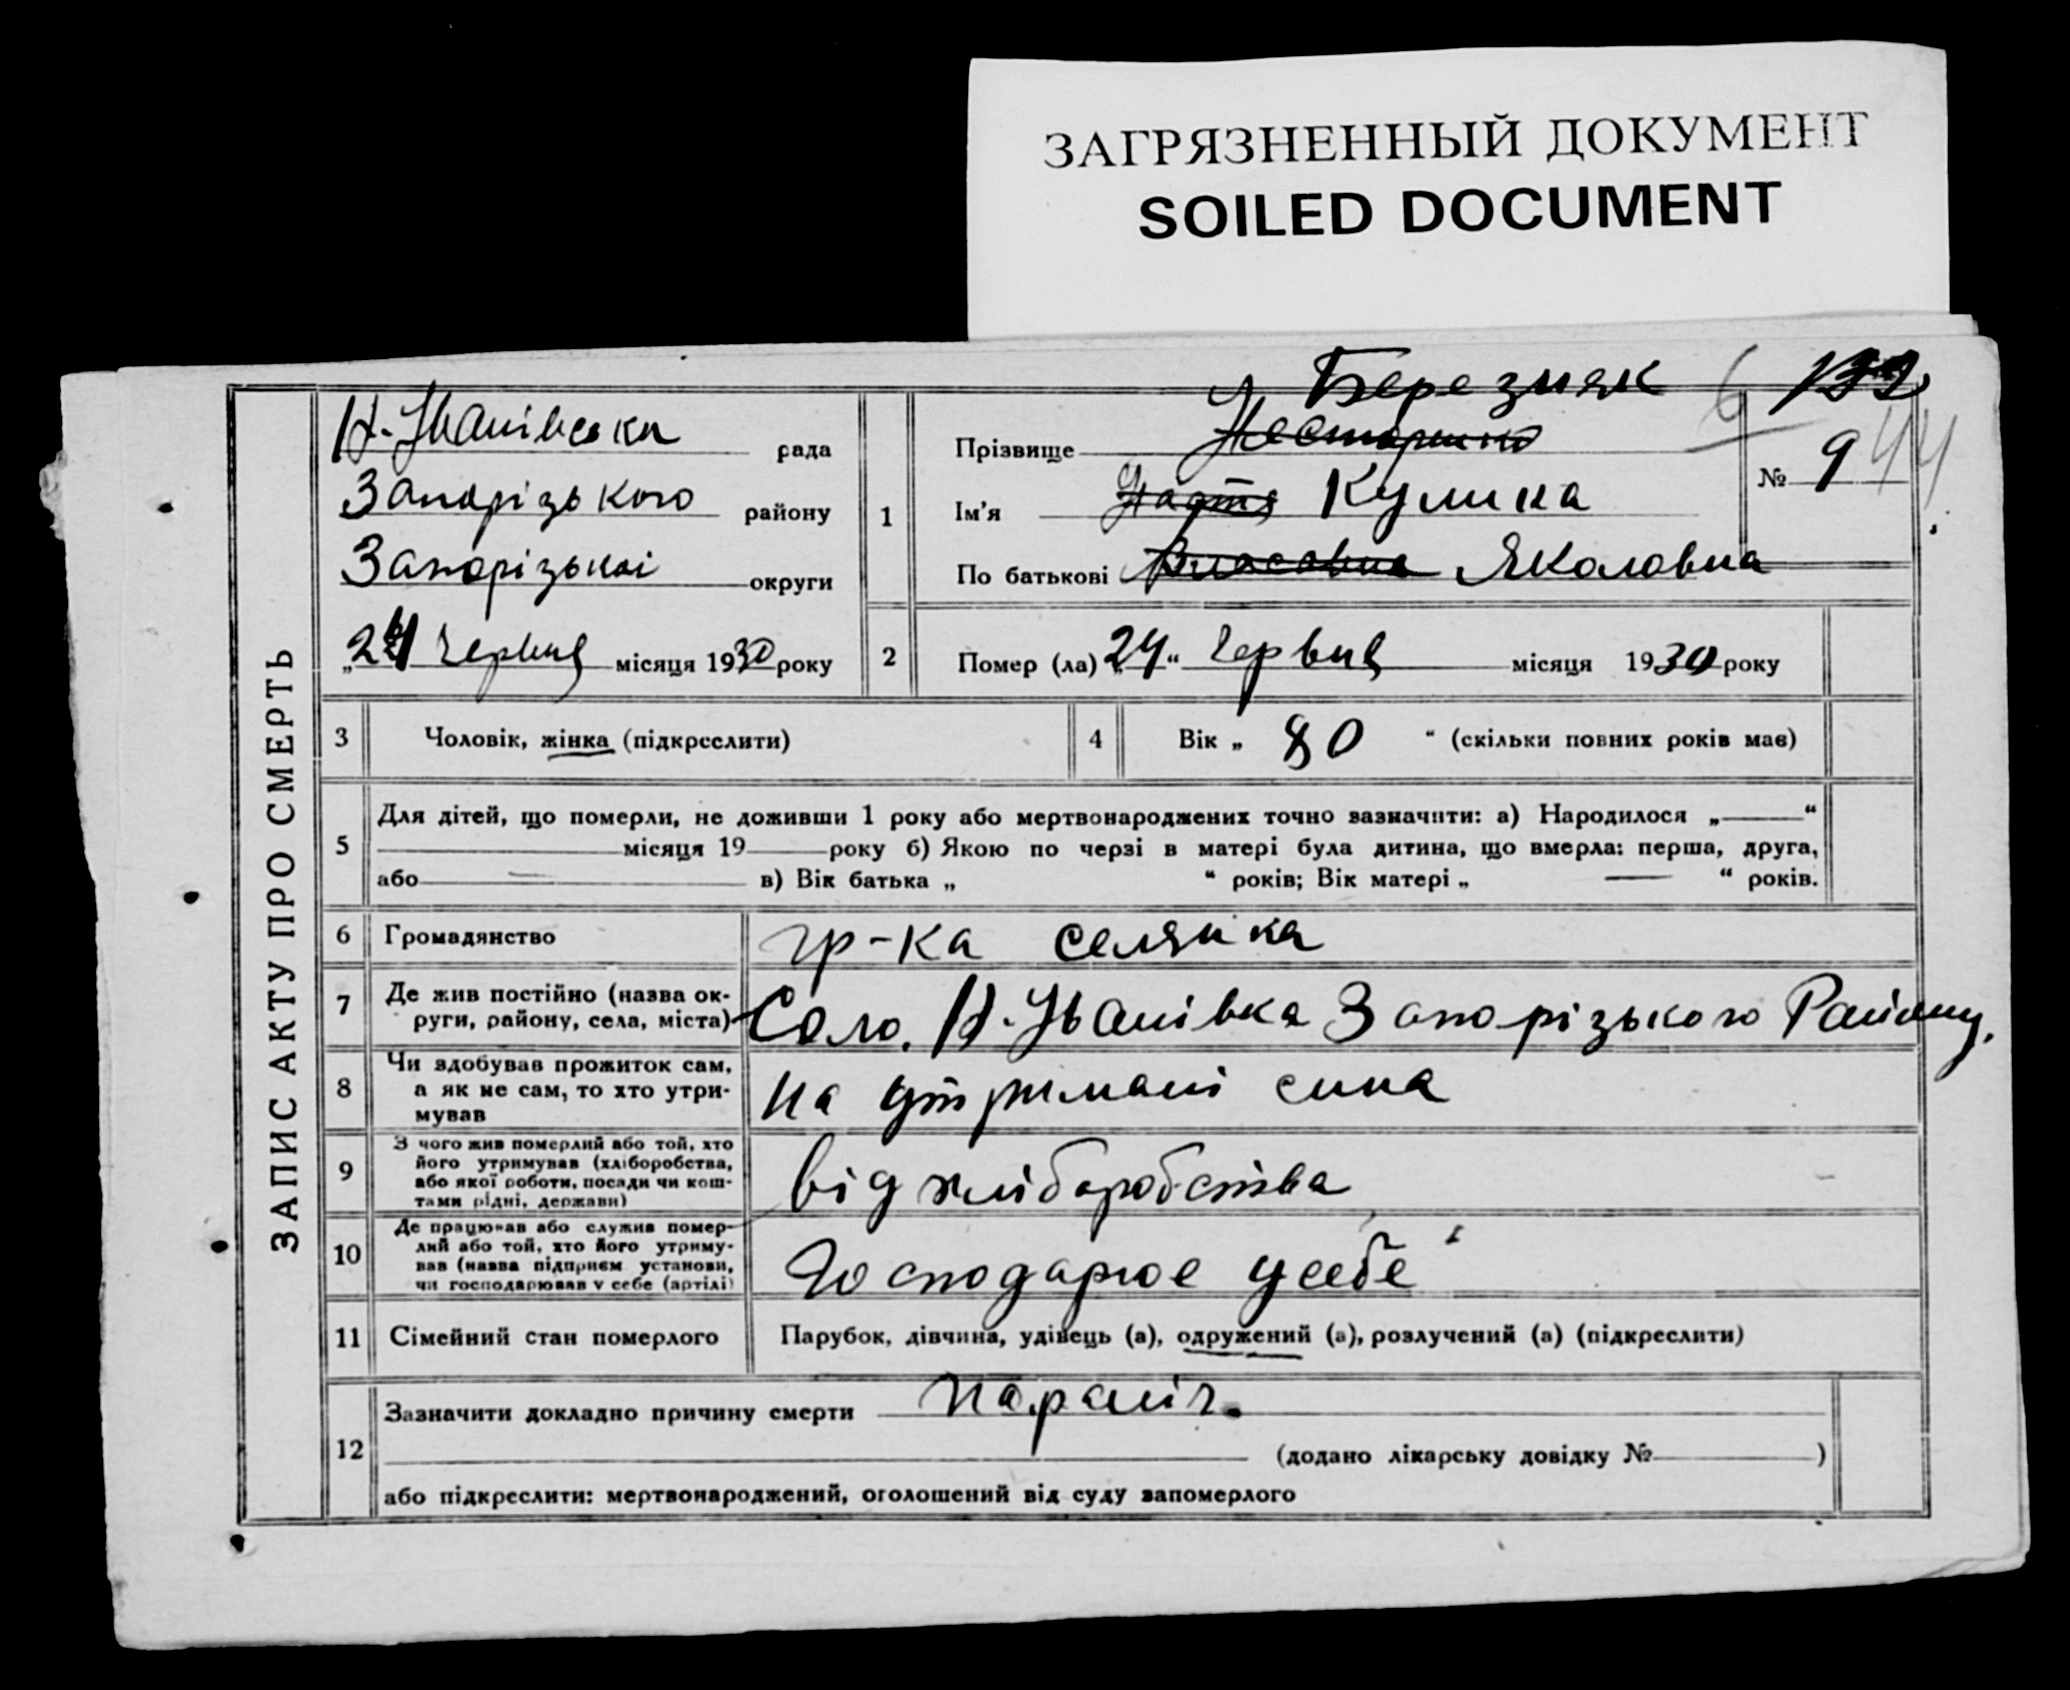 ЗАГРЯЗНЕННЫЙ ДОКУМЕНТ
SOILED DOCUMENT
ЗАПИС АКТУ ПРО СМЕРТЬ
Н.-Іванівська рада
Запорізького району
Запорізькоі округи
„24 червня місяця 1930 року
1
Березняк
Прізвище Несторенко
Ім'я Кулина
По батькові Власовна Яколовна
6
№ 9 44
2 Помер (ла) „24“ червня місяця 1930 року
3 Чоловік, жінка (підкреслити)
4 Вік „ 80 “ (скільки повних років має)
5 Для дітей, що померли, не доживши 1 року або мертвонароджених точно зазначити: а) Народилося „ “
місяця 19 року б) Якою по черзі в матері була дитина, що вмерла: перша, друга,
або в) Вік батька „ “ років; Вік матері „ “ років.
6 Громадянство гр-ка селянка
7 Де жив постійно (назва ок-
руги, району, села, міста) Село. Н.-Іванівка Запорізького Району.
8 Чи здобував прожиток сам,
а як не сам, то хто утри-
мував на утримані сина
9 З чого жив померлий або той, хто
його утримував (хліборобства,
або якої роботи, посади чи кош-
тами рідні, держави) від хліборобства
10 Де працював або служив помер-
лий або той, хто його утриму-
вав (назва підприєм установи,
чи господарював у себе (артілі) Господарює усебе
11 Сімейний стан померлого Парубок, дівчина, удівець (а), одружений (а), розлучений (а) (підкреслити)
12 Зазначити докладно причину смерти параліч.
(додано лікарську довідку № )
або підкреслити: мертвонароджений, оголошений від суду запомерлого